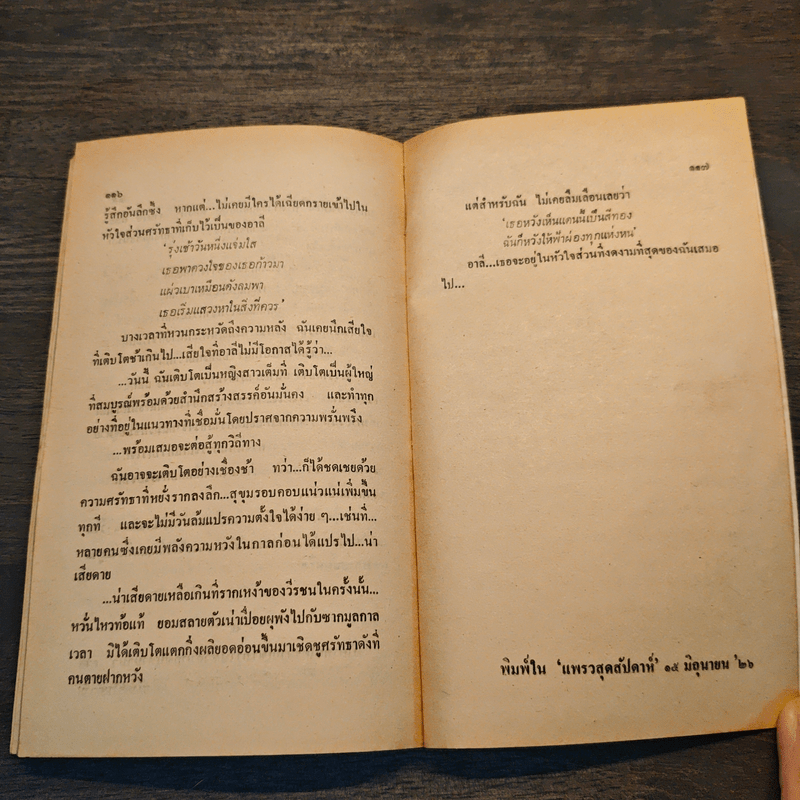 ๑๑๖
รู้สึกอันลึกซึ้ง หากแต่...ไม่เคยมีใครได้เฉียดกรายเข้าไปใน
หัวใจส่วนศรัทธาที่เก็บไว้เป็นของอาลี
‘รุ่งเช้าวันหนึ่งแจ่มใส
เธอพาดวงใจของเธอก้าวมา
แผ่วเบาเหมือนดังลมพา
เธอเริ่มแสวงหาในสิ่งที่ควร’
บางเวลาที่หวนกระหวัดถึงความหลัง ฉันเคยนึกเสียใจ
ที่เติบโตช้าเกินไป...เสียใจที่อาลีไม่มีโอกาสได้รู้ว่า...
...วันนี้ ฉันเติบโตเป็นหญิงสาวเต็มที่ เติบโตเป็นผู้ใหญ่
ที่สมบูรณ์พร้อมด้วยสำนึกสร้างสรรค์อันมั่นคง และทำทุก
อย่างที่อยู่ในแนวทางที่เชื่อมั่นโดยปราศจากความพรั่นพรึง
...พร้อมเสมอจะต่อสู้ทุกวิถีทาง
ฉันอาจจะเติบโตอย่างเชื่องช้า ทว่า...ก็ได้ชดเชยด้วย
ความศรัทธาที่หยั่งรากลงลึก...สุขุมรอบคอบแน่วแน่เพิ่มขึ้น
ทุกที และจะไม่มีวันล้มแปรความตั้งใจได้ง่าย ๆ...เช่นที่...
หลายคนซึ่งเคยมีพลังความหวังในกาลก่อนได้แปรไป...น่า
เสียดาย
...น่าเสียดายเหลือเกินที่รากเหง้าของวีรชนในครั้งนั้น...
หวั่นไหวท้อแท้ ยอมสลายตัวเน่าเปื่อยผุพังไปกับซากมูลกาล
เวลา มิได้เติบโตแตกกิ่งผลิยอดอ่อนขึ้นมาเชิดชูศรัทธาดังที่
คนตายฝากหวัง
๑๑๗
แต่สำหรับฉัน ไม่เคยลืมเลือนเลยว่า
‘เธอหวังเห็นแดนนี้เป็นสีทอง
ฉันก็หวังให้ฟ้าผ่องทุกแห่งหน’
อาลี...เธอจะอยู่ในหัวใจส่วนที่งดงามที่สุดของฉันเสมอ
ไป...
พิมพ์ใน ‘แพรวสุดสัปดาห์’ ๑๕ มิถุนายน ’๒๖